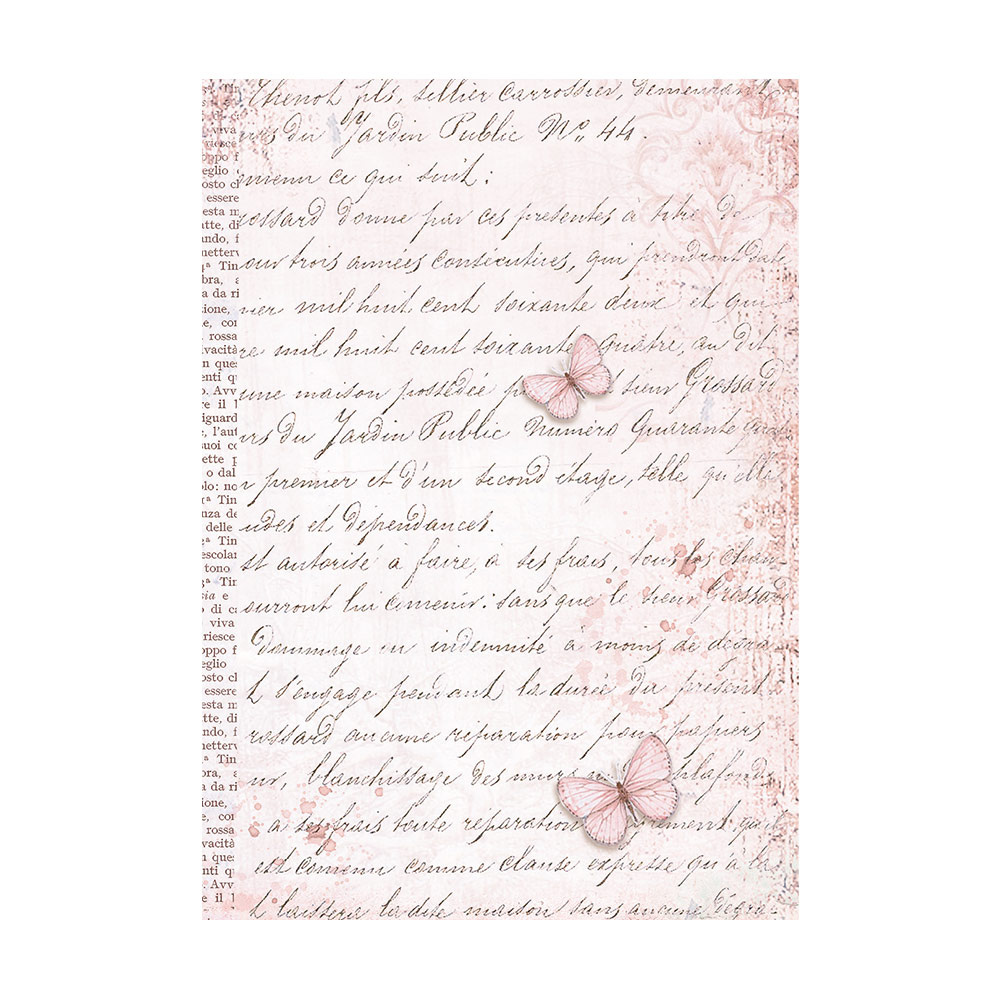 Thenot fils, sellier Carrossier, demeurant
urs du Jardin Public N° 44.
omenu ce qui suit :
ossard donne par ces presentes à titre de
our trois années consécutives, qui prendront date
vier mil huit cent soixante deux et qui
re mil huit cent soixante Quatre, au dit
une maison possédée sieur Grossard
urs du Jardin Public Numéro Quarante
premier et d'un second étage, telle qu'elle
udes et dépendances.
st autorisé à faire, à ses frais, tous les chan-
ourront lui convenir : sans que le sieur Grossard
Dommage ou indemnité à moins de dégra-
t s'engage pendant la durée du présent
rossard aucune réparation pour papiers
ur, blanchissage des murs plafonds
a ses frais toute réparation
est convenu comme clause expresse qu'à la
t laissera la dite maison sans aucune dégra-
ª Tin
viva
riesce
oppo f
eglio
osto cl
essere
esta m
tte, di
ndo, f
metterv
ª Tin
bra, a
a da ri
ione,
e, con
rossa
vacità
n ques
enti q
o. Avv
re il l
iguard
, l'aut
suoi co
ette p
o dal
olo: no
ª Tin
nza de
delle
ª Tin
escolar
tono
ª Tin
sia e
o di ca
viva
riesce
oppo f
eglio
osto cl
essere
esta m
tte, di
ndo, f
netterv
ª Tin
bra, a
a da ri
ione,
, con
rossa
vacità
n ques
nti q
. Avv
e il l